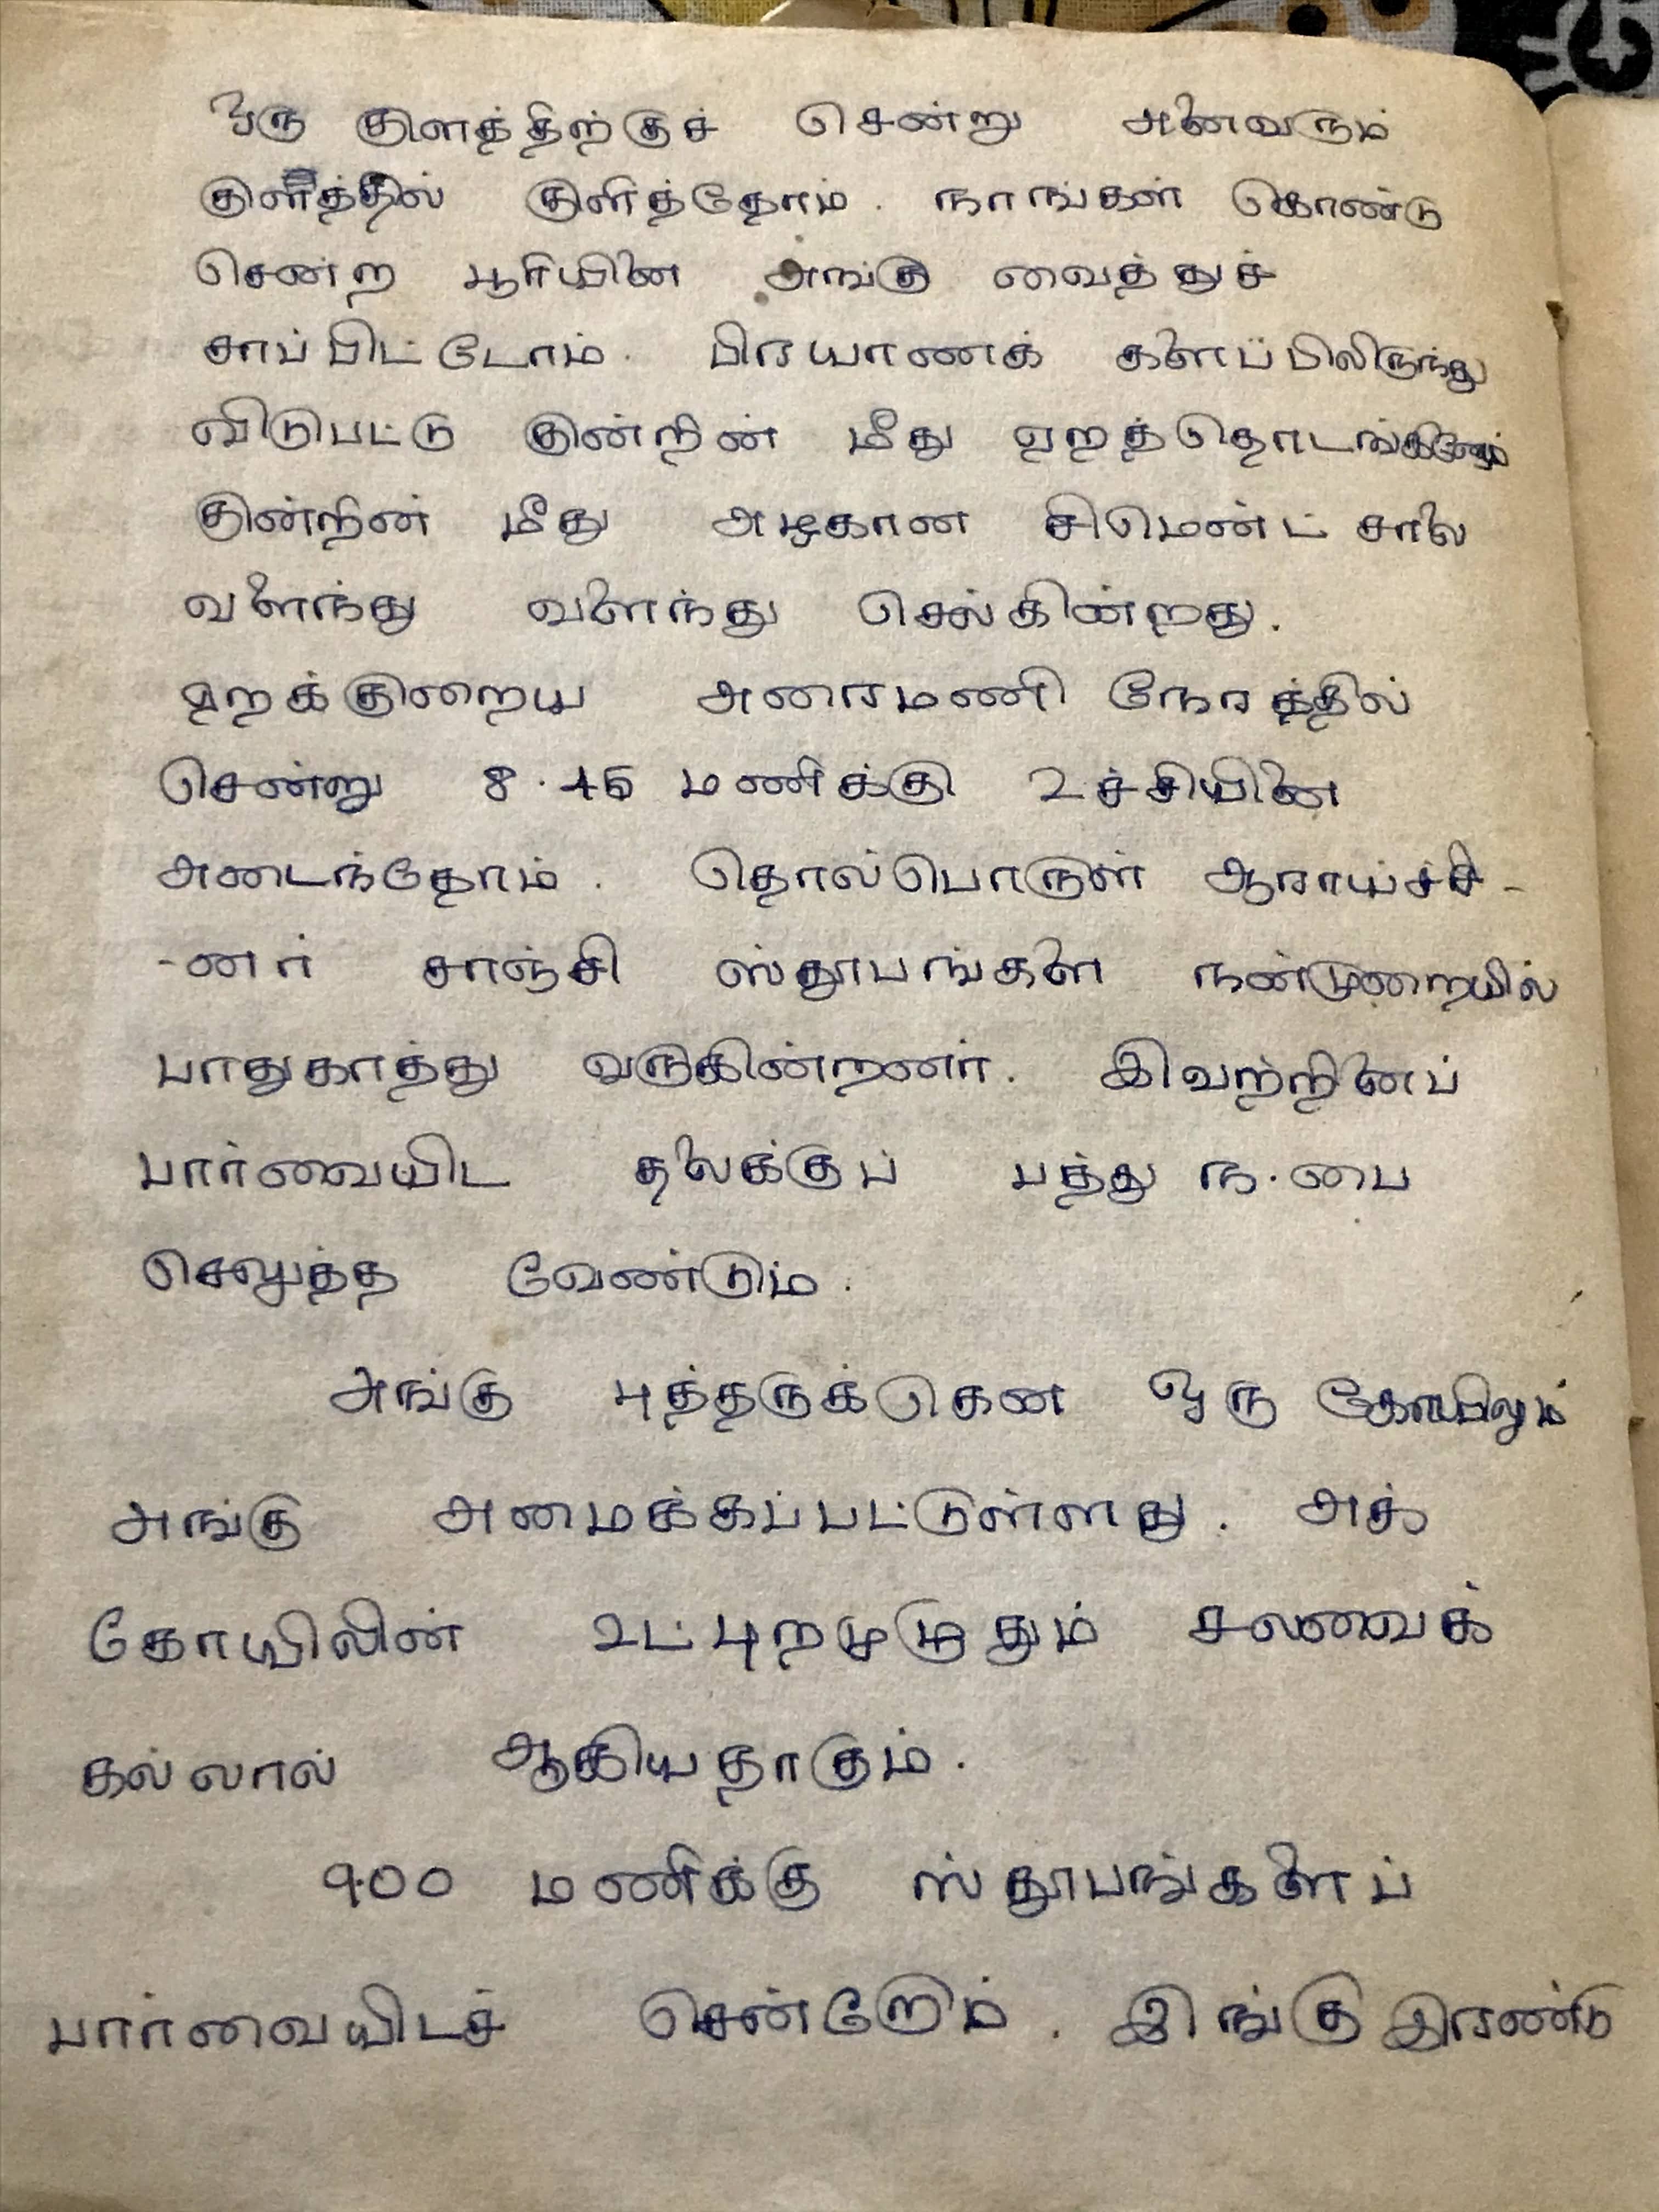 ஒரு குளத்திற்குச் சென்று அனைவரும்
குளத்தில் குளித்தோம். நாங்கள் கொண்டு
சென்ற பூரியினை அங்கு வைத்துச்
சாப்பிட்டோம். பிரயாணக் களைப்பிலிருந்து
விடுபட்டு குன்றின் மீது ஏறத்தொடங்கினோம்
குன்றின் மீது அழகான சிமெண்ட் சாலை
வளைந்து வளைந்து செல்கின்றது.
ஏறக்குறைய அரைமணி நேரத்தில்
சென்று 8.45 மணிக்கு உச்சியினை
அடைந்தோம். தொல்பொருள் ஆராய்ச்சி-
-னர் சாஞ்சி ஸ்தூபங்களை நன்முறையில்
பாதுகாத்து வருகின்றனர். இவற்றினைப்
பார்வையிட தலைக்குப் பத்து ந.பை
செலுத்த வேண்டும்.
அங்கு புத்தருக்கென ஒரு கோயிலும்
அங்கு அமைக்கப்பட்டுள்ளது. அக்
கோயிலின் உட்புறமுழுதும் சலவைக்
கல்லால் ஆகியதாகும்.
9.00 மணிக்கு ஸ்தூபங்களைப்
பார்வையிடச் சென்றோம். இங்கு இரண்டு